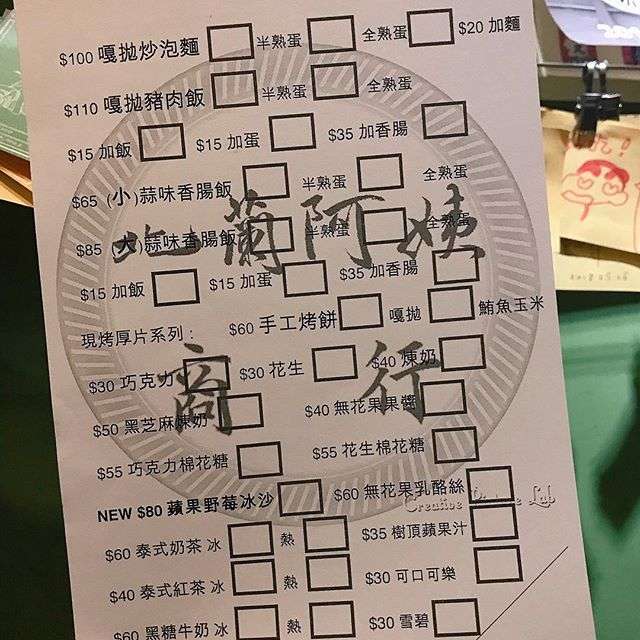 $100 嘎拋炒泡麵 半熟蛋 全熟蛋 $20 加麵
$110 嘎拋豬肉飯 半熟蛋 全熟蛋
$15 加飯 $15 加蛋 $35 加香腸
$65 (小)蒜味香腸飯 半熟蛋 全熟蛋
$85 (大)蒜味香腸飯 半熟蛋 全熟蛋
蘭阿姨
$15 加飯 $15 加蛋 $35 加香腸
現烤厚片系列: $60 手工烤餅 嘎拋 鮪魚玉米
$30 巧克力 $30 花生 $40 煉奶
商行
$50 黑芝麻煉奶 $40 無花果果醬
$55 巧克力棉花糖 $55 花生棉花糖
NEW $80 蘋果野莓冰沙 $60 無花果乳酪絲
Creative Lab
$60 泰式奶茶 冰 熱 $35 樹頂蘋果汁
$40 泰式紅茶 冰 熱 $30 可口可樂
$60 黑糖牛奶 冰 熱 $30 雪碧